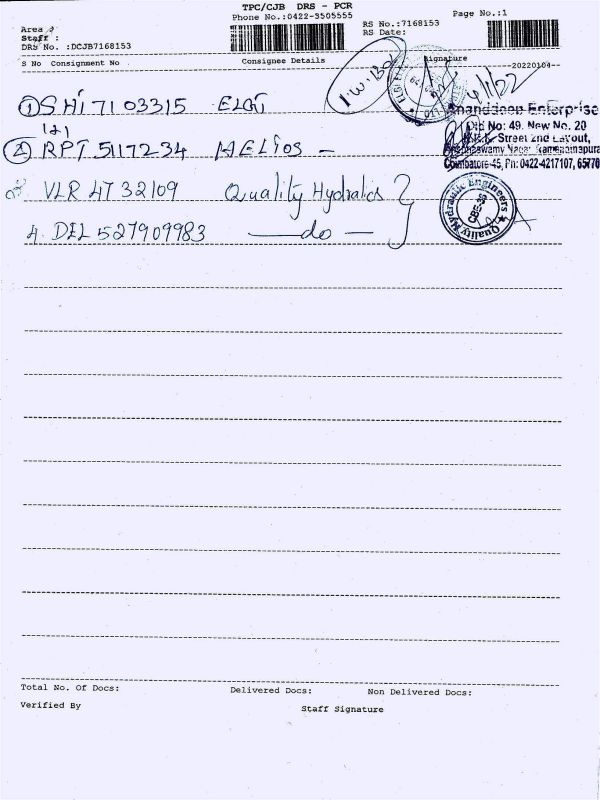 TPC/CJB DRS - PCR
Phone No.:0422-3505555
Page No.:1
RS No.:7168153
RS Date:
Area :
Staff :
DRS No. :DCJB7168153
S No Consignment No
Consignee Details
Signature
20220104
① SHI 7103315 ELGI
② RPT 5117234 HELIOS -
VLR 4732109 Quality Hydralics
4. DEL 527909983 — do —
Ananddeep Enterprise
Old No: 49, New No. 20
Street 2nd Layout,
Coimbatore-45, Ph: 0422-4217107,
Quality Hydraulic Engineers
CBE-36
Total No. Of Docs:
Delivered Docs:
Non Delivered Docs:
Verified By
Staff Signature